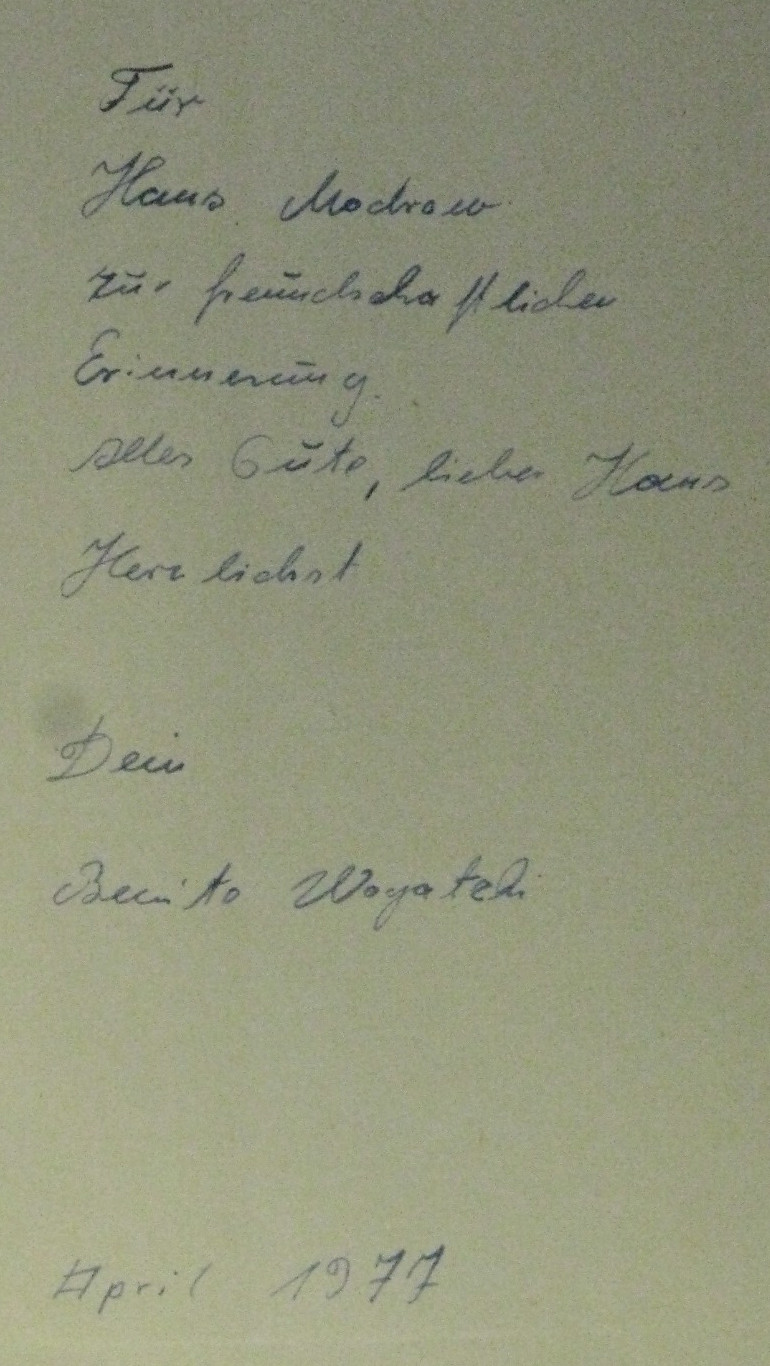 Für
Hans Modrow
zur freundschaftlichen
Erinnerung.
Alles Gute, lieber Hans
Herzlichst
Dein
Benito Wogatzki
April 1977